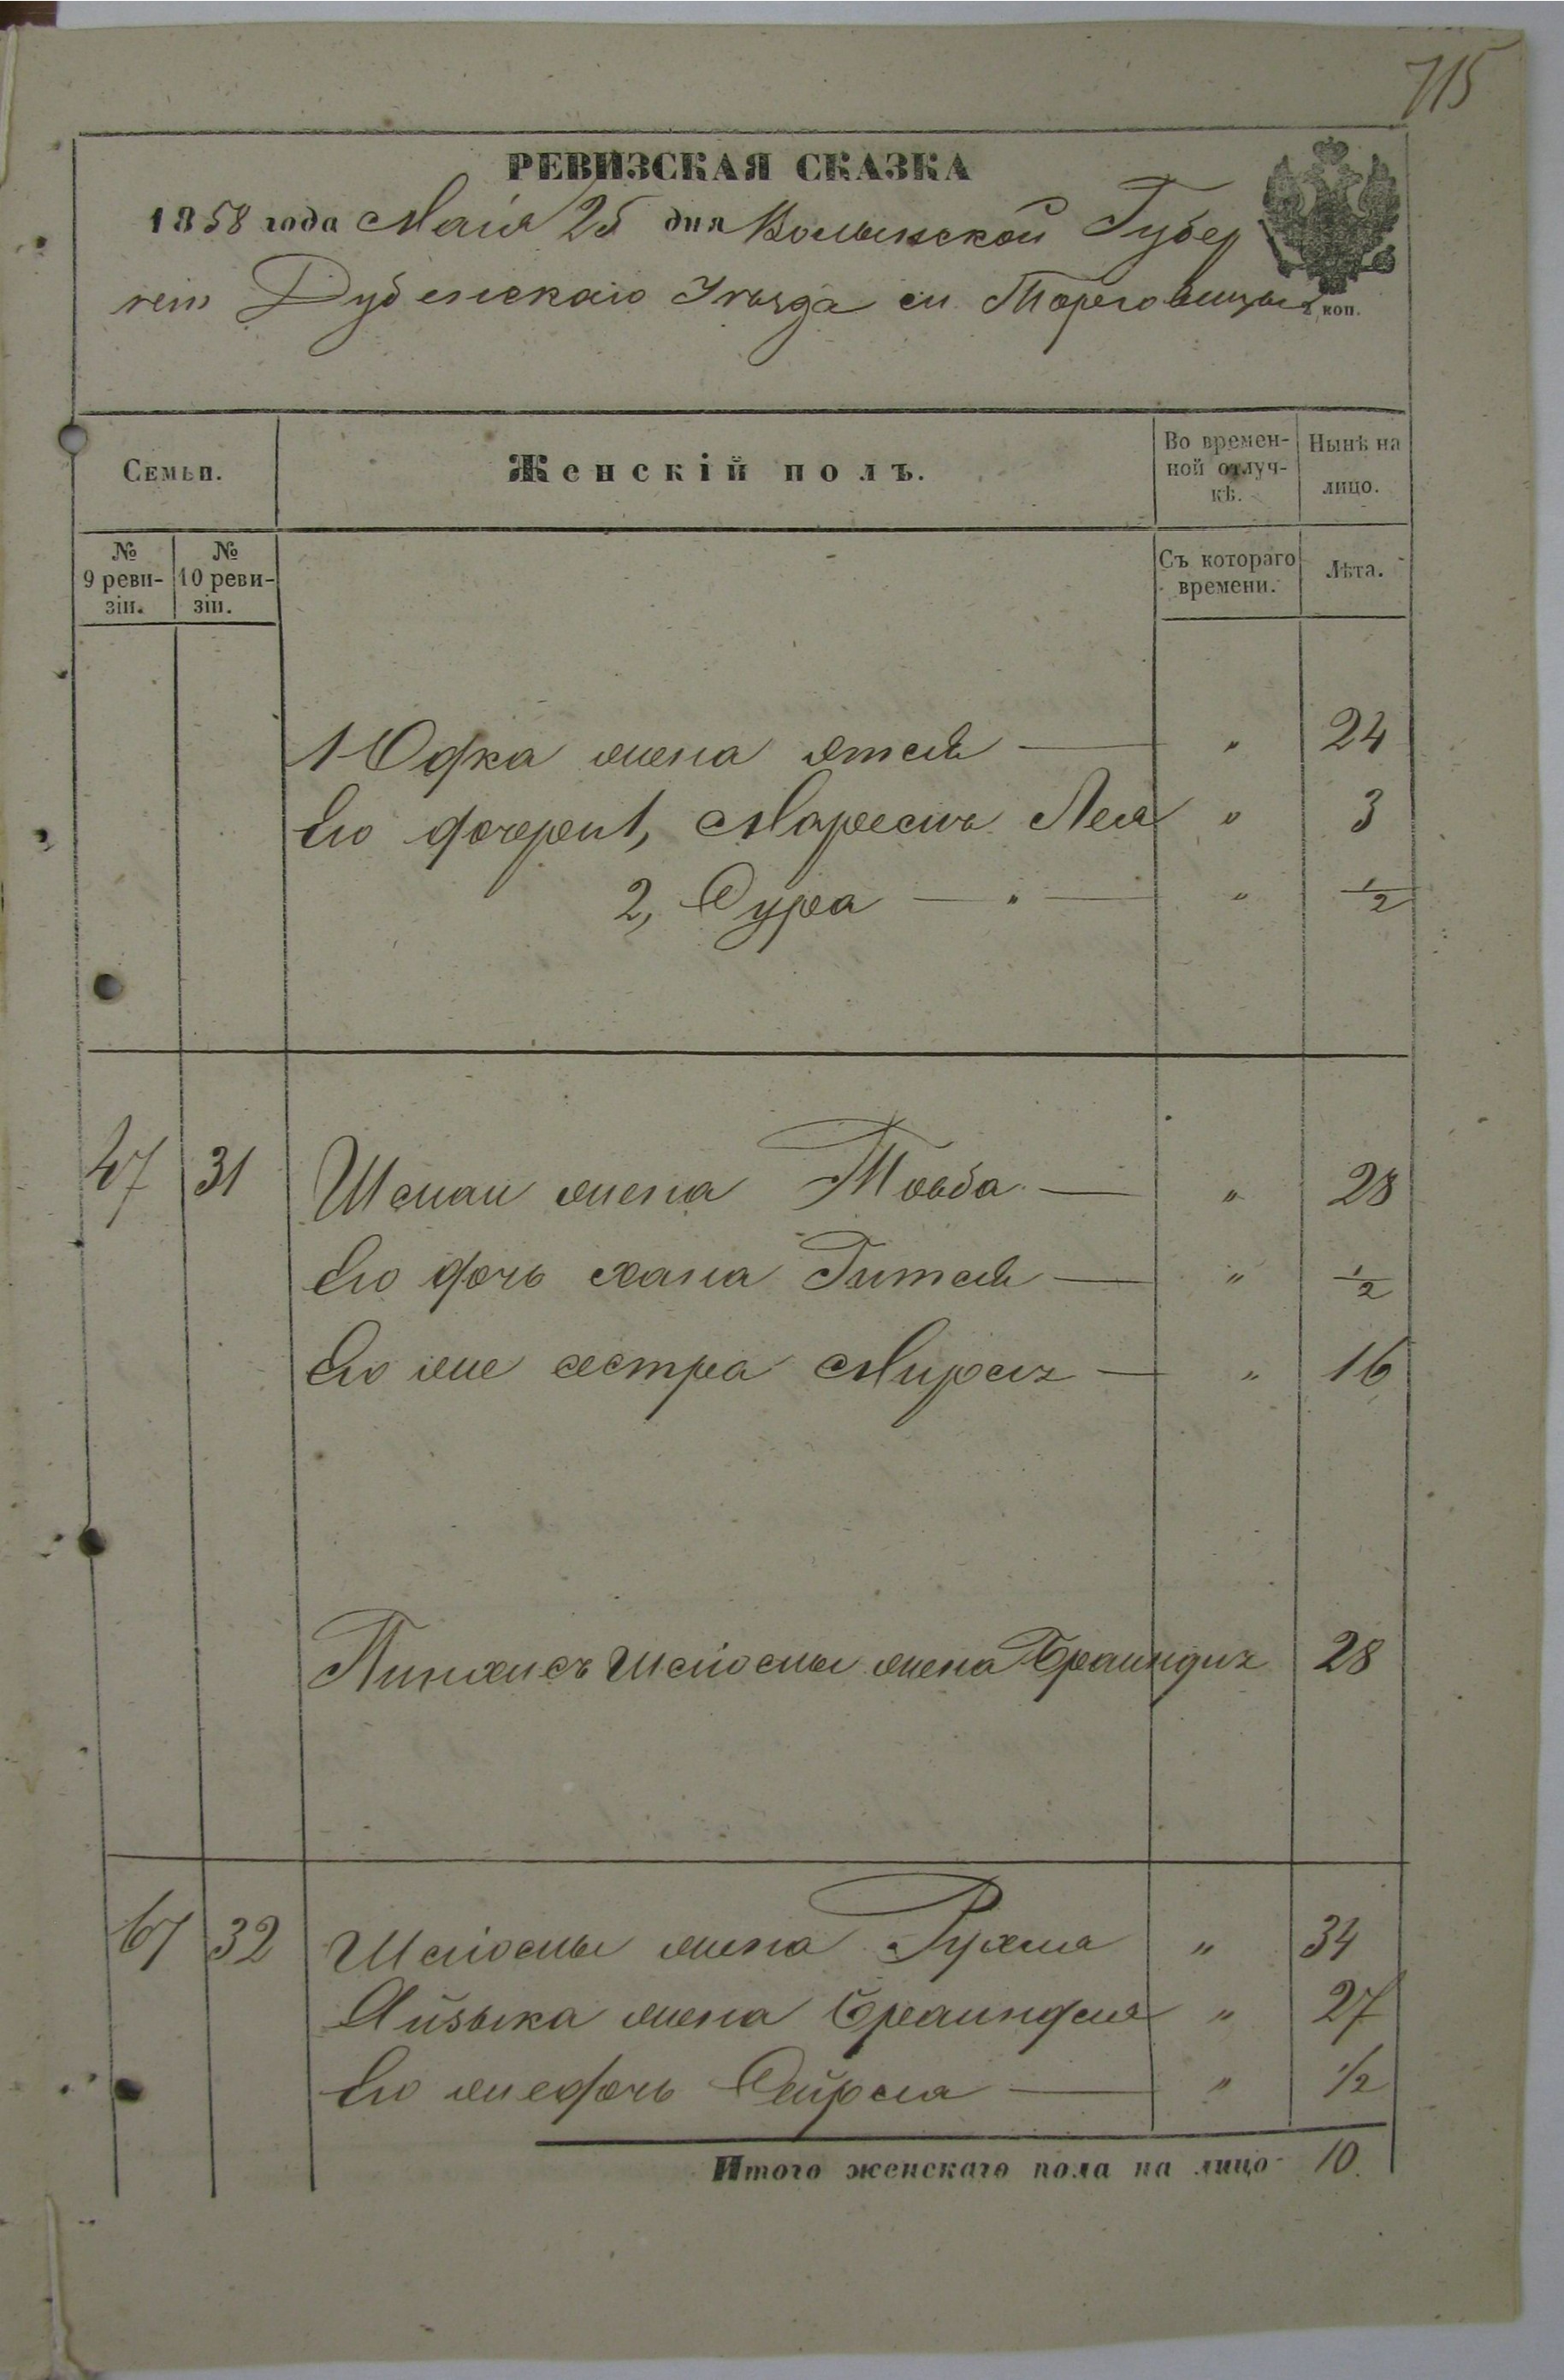 715
РЕВИЗСКАЯ СКАЗКА
1858 года Маія 25 дня Волынской Губер
ніи Дубенскаго Уѣзда м. Торговицы
2 коп.
Семьи.
Женскій полъ.
Во времен-
ной отлуч-
кѣ.
Нынѣ на
лицо.
№
9 реви-
зіи.
№
10 реви-
зіи.
Съ котораго
времени.
Лѣта.
Юдка жена Этля — " 24
Его дочери 1, Маріемъ Лея " 3
2, Сура — " — " 1/2
47 31 жена Товба — " 28
Его дочь хана Гитля — " 1/2
Его же сестра — " 16
Пинхисъ Шліомы жена 28
67 32 Шліомы жена Рухля " 34
Айзыка жена Брайндля " 27
Его же дочь Сейрля — " 1/2
Итого женскаго пола на лицо 10.